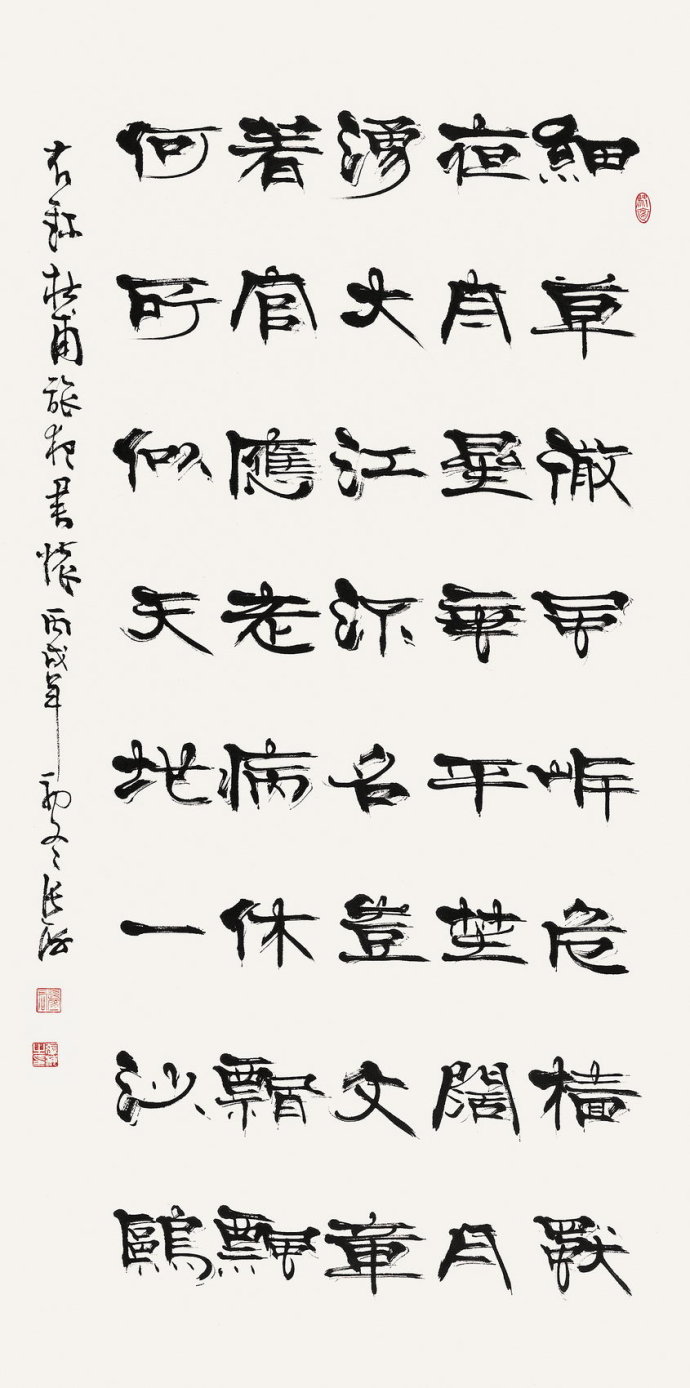 細草微風岸危檣獨
夜舟星垂平埜闊月
湧大江流名豈文章
着官應老病休飄飄
何所似天地一沙鷗
右録杜甫旅夜書懷丙戌年初冬張海